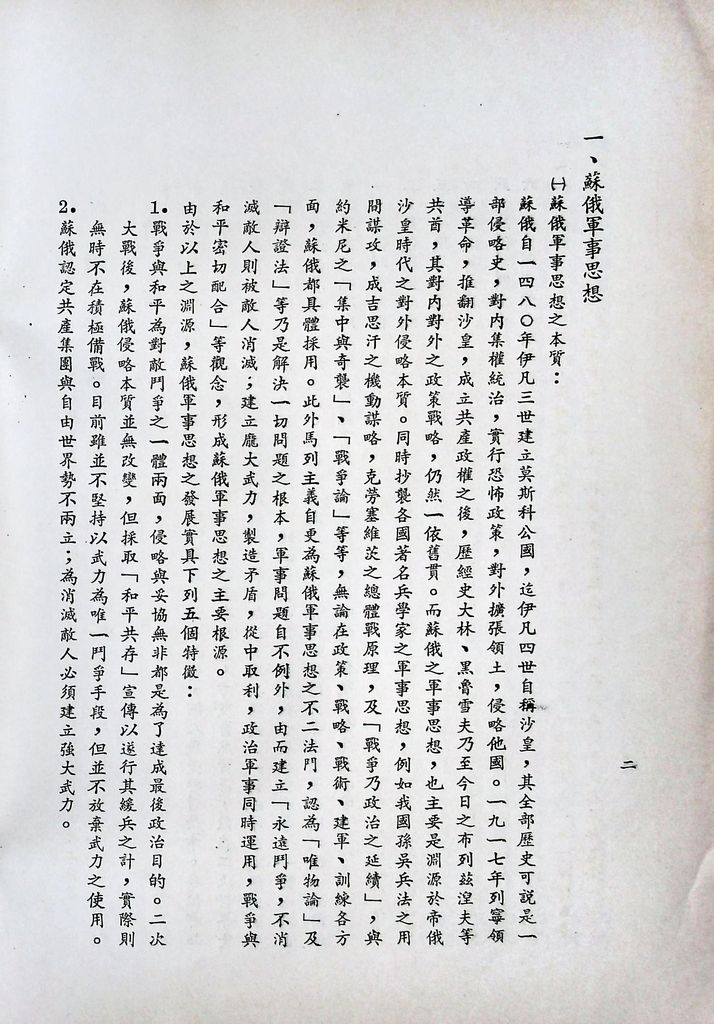 一、蘇俄軍事思想
㈠蘇俄軍事思想之本質：
蘇俄自一四八〇年伊凡三世建立莫斯科公國，迄伊凡四世自稱沙皇，其全部歷史可說是一
部侵略史，對內集權統治，實行恐怖政策，對外擴張領土，侵略他國。一九一七年列寧領
導革命，推翻沙皇，成立共產政權之後，歷經史大林、黑魯雪夫乃至今日之布列茲湼夫等
共酋，其對內對外之政策戰略，仍然一依舊貫。而蘇俄之軍事思想，也主要是淵源於帝俄
沙皇時代之對外侵略本質。同時抄襲各國著名兵學家之軍事思想，例如我國孫吳兵法之用
間謀攻，成吉思汗之機動謀略，克勞塞維茨之總體戰原理，及「戰爭乃政治之延續」，與
約米尼之「集中與奇襲」、「戰爭論」等等，無論在政策、戰略、戰術、建軍、訓練各方
面，蘇俄都具體採用。此外馬列主義自更為蘇俄軍事思想之不二法門，認為「唯物論」及
「辯證法」等乃是解決一切問題之根本，軍事問題自不例外，由而建立「永遠鬥爭，不消
滅敵人則被敵人消滅；建立龐大武力，製造矛盾，從中取利，政治軍事同時運用，戰爭與
和平密切配合」等觀念，形成蘇俄軍事思想之主要根源。
由於以上之淵源，蘇俄軍事思想之發展實具下列五個特徵：
1.戰爭與和平為對敵鬥爭之一體兩面，侵略與妥協無非都是為了達成最後政治目的。二次
大戰後，蘇俄侵略本質並無改變，但採取「和平共存」宣傳以遂行其緩兵之計，實際則
無時不在積極備戰。目前雖並不堅持以武力為唯一鬥爭手段，但並不放棄武力之使用。
2.蘇俄認定共產集團與自由世界勢不兩立；為消滅敵人必須建立強大武力。
二